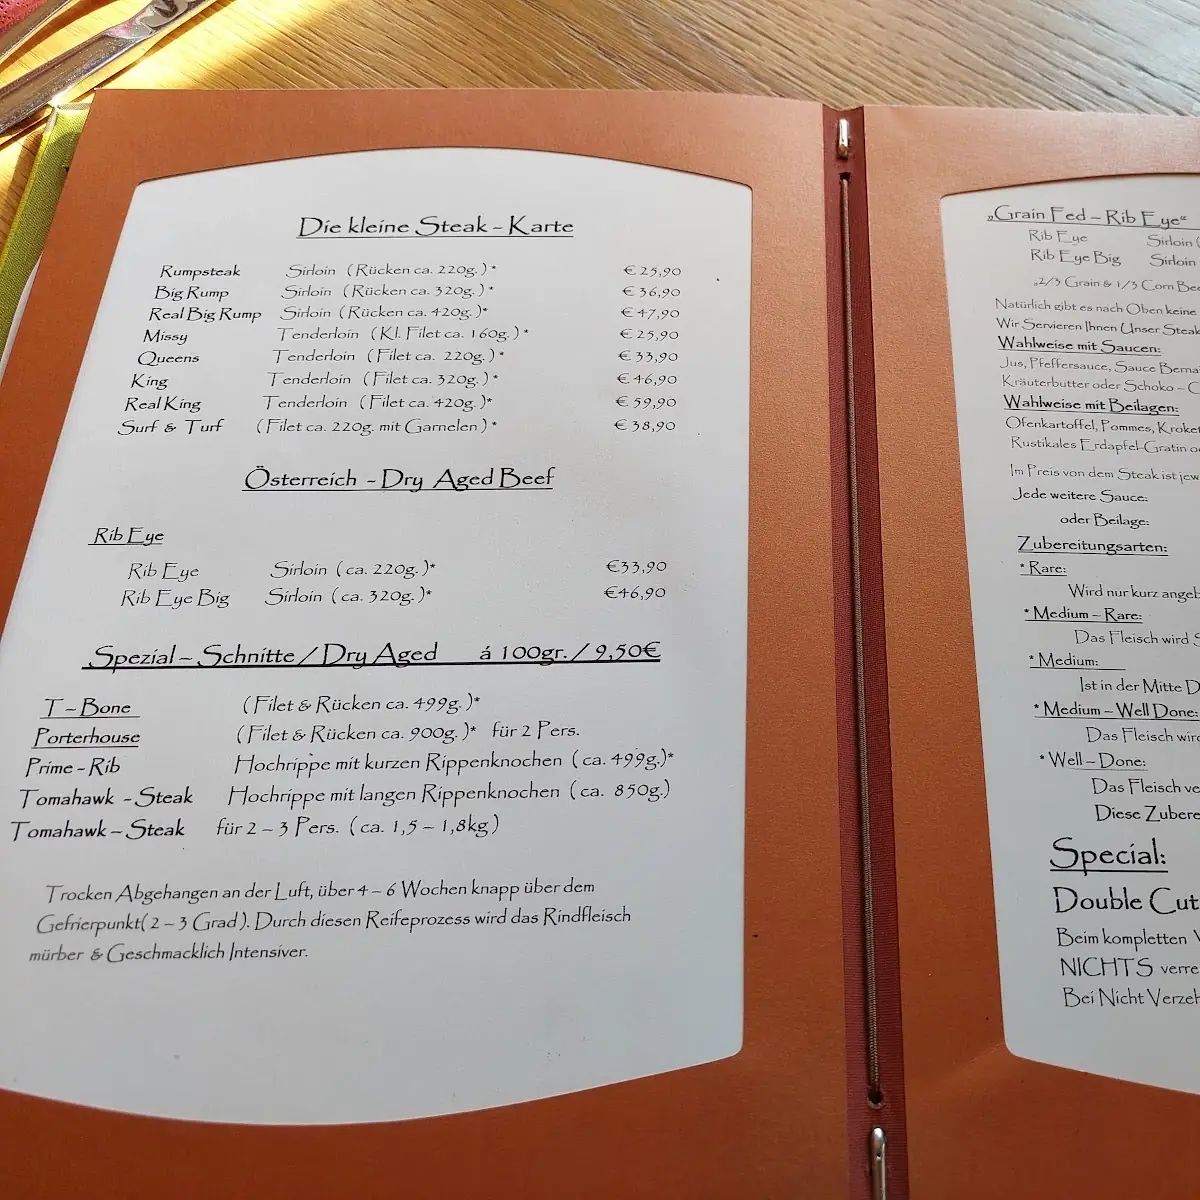 Die kleine Steak - Karte
Rumpsteak Sirloin ( Rücken ca. 220g. ) * € 25,90
Big Rump Sirloin ( Rücken ca. 320g. ) * € 36,90
Real Big Rump Sirloin ( Rücken ca. 420g. )* € 47,90
Missy Tenderloin ( Kl. Filet ca. 160g. ) * € 25,90
Queens Tenderloin ( Filet ca. 220g. ) * € 33,90
King Tenderloin ( Filet ca. 320g. ) * € 46,90
Real King Tenderloin ( Filet ca. 420g. )* € 59,90
Surf & Turf ( Filet ca. 220g. mit Garnelen ) * € 38,90
Österreich - Dry Aged Beef
Rib Eye
Rib Eye Sirloin ( ca. 220g. )* €33,90
Rib Eye Big Sirloin ( ca. 320g. )* €46,90
Spezial – Schnitte / Dry Aged á 100gr. / 9,50€
T – Bone ( Filet & Rücken ca. 499g. )*
Porterhouse ( Filet & Rücken ca. 900g. )* für 2 Pers.
Prime - Rib Hochrippe mit kurzen Rippenknochen ( ca. 499g.)*
Tomahawk - Steak Hochrippe mit langen Rippenknochen ( ca. 850g.)
Tomahawk – Steak für 2 – 3 Pers. ( ca. 1,5 – 1,8kg )
Trocken Abgehangen an der Luft, über 4 – 6 Wochen knapp über dem
Gefrierpunkt( 2 – 3 Grad ). Durch diesen Reifeprozess wird das Rindfleisch
mürber & Geschmacklich Intensiver.
„Grain Fed – Rib Eye“
Rib Eye Sirloin (
Rib Eye Big Sirloin
„2/3 Grain & 1/3 Corn Bee
Natürlich gibt es nach Oben keine
Wir Servieren Ihnen Unser Steak
Wahlweise mit Saucen:
Jus, Pfeffersauce, Sauce Berna
Kräuterbutter oder Schoko – C
Wahlweise mit Beilagen:
Ofenkartoffel, Pommes, Kroket
Rustikales Erdapfel-Gratin o
Im Preis von dem Steak ist jew
Jede weitere Sauce:
oder Beilage:
Zubereitungsarten:
* Rare:
Wird nur kurz angeb
* Medium – Rare:
Das Fleisch wird S
* Medium:
Ist in der Mitte D
* Medium – Well Done:
Das Fleisch wird
* Well – Done:
Das Fleisch ve
Diese Zubere
Special:
Double Cut
Beim kompletten V
NICHTS verre
Bei Nicht Verzeh